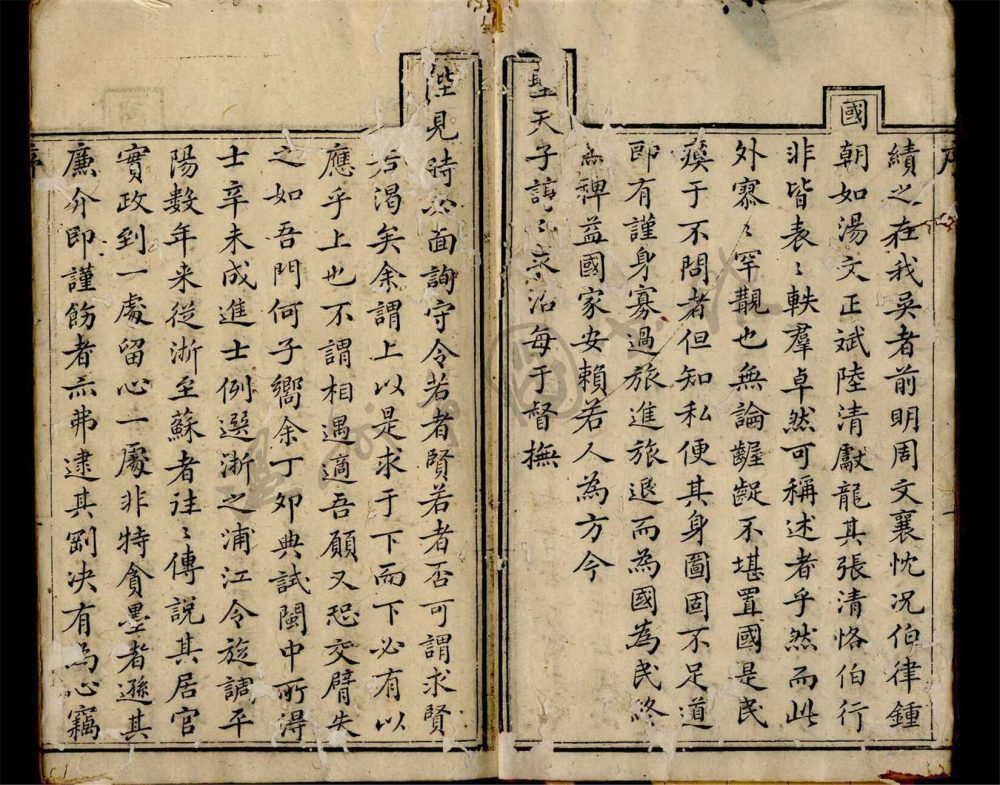 序
績之在我吳者前明周文襄忱况伯律鍾
國朝如湯文正斌陸清獻隴其張清恪伯行
非皆表〻軼羣卓然可稱述者乎然而此
外寥〻罕覯也無論齷齪不堪置國是民
瘼于不問者但知私便其身圖固不足道
即有謹身寡過旅進旅退而為國為民終
無裨益國家安賴若人為方今
聖天子諄〻求治每于督撫
陛見時必面詢守令若者賢若者否可謂求賢
若渴矣余謂上以是求于下而下必有以
應乎上也不謂相遇適吾願又恐交臂失
之如吾門何子嚮余丁卯典試閩中所得
士辛未成進士例選浙之浦江令旋調平
陽數年来從浙至蘇者往〻傳說其居官
實政到一處留心一處非特貪墨者遜其
廉介即謹飭者亦弗逮其剛决有為心竊
序